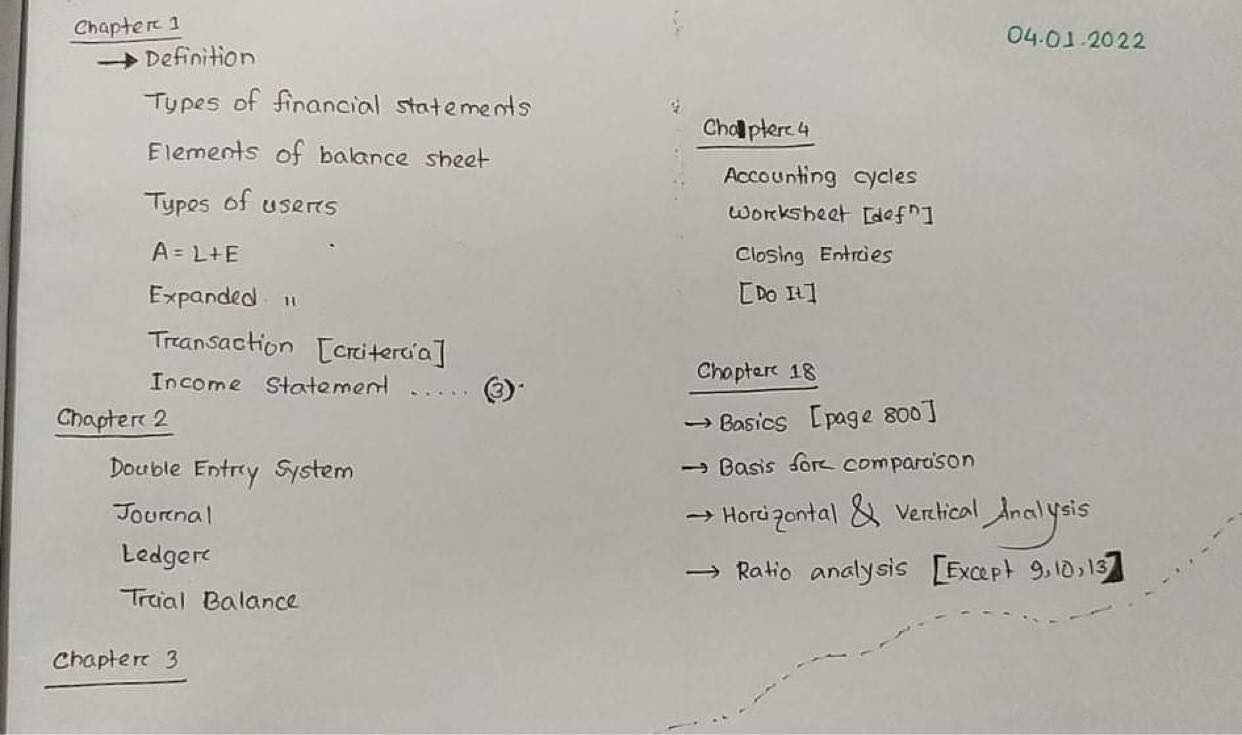 Chapter 1
→ Definition
Types of financial statements
Elements of balance sheet
Types of users
A = L+E
Expanded "
Transaction [criteria]
Income Statement ..... (3)
Chapter 2
Double Entry System
Journal
Ledger
Trial Balance
Chapter 3
04.01.2022
Chapter 4
Accounting cycles
Worksheet [defⁿ]
Closing Entries
[Do It]
Chapter 18
→ Basics [page 800]
→ Basis for comparison
→ Horizontal & Vertical Analysis
→ Ratio analysis [Except 9,10,13]